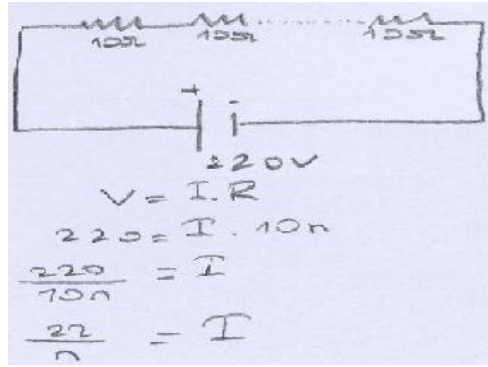 10Ω 10Ω 10Ω
+ -
220V
V = I.R
220 = I . 10n
220/10n = I
22/n = I